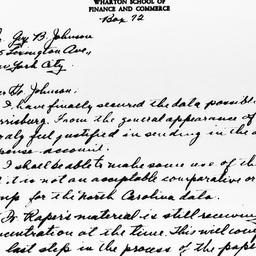 WHARTON SCHOOL OF
FINANCE AND COMMERCE
Box 72
Guy B. Johnson
Lexington Ave.,
New York City.
Johnson.
I have finally secured the data possible
rrisburg. From the general appearance of
feel justified in sending in the
account.
I shall be able to make some use of the
it is not an acceptable comparative or
up for the North Carolina data.
Dr. Raper's material is still receiving
centration at the time. This will cover
last step in the process of the paper